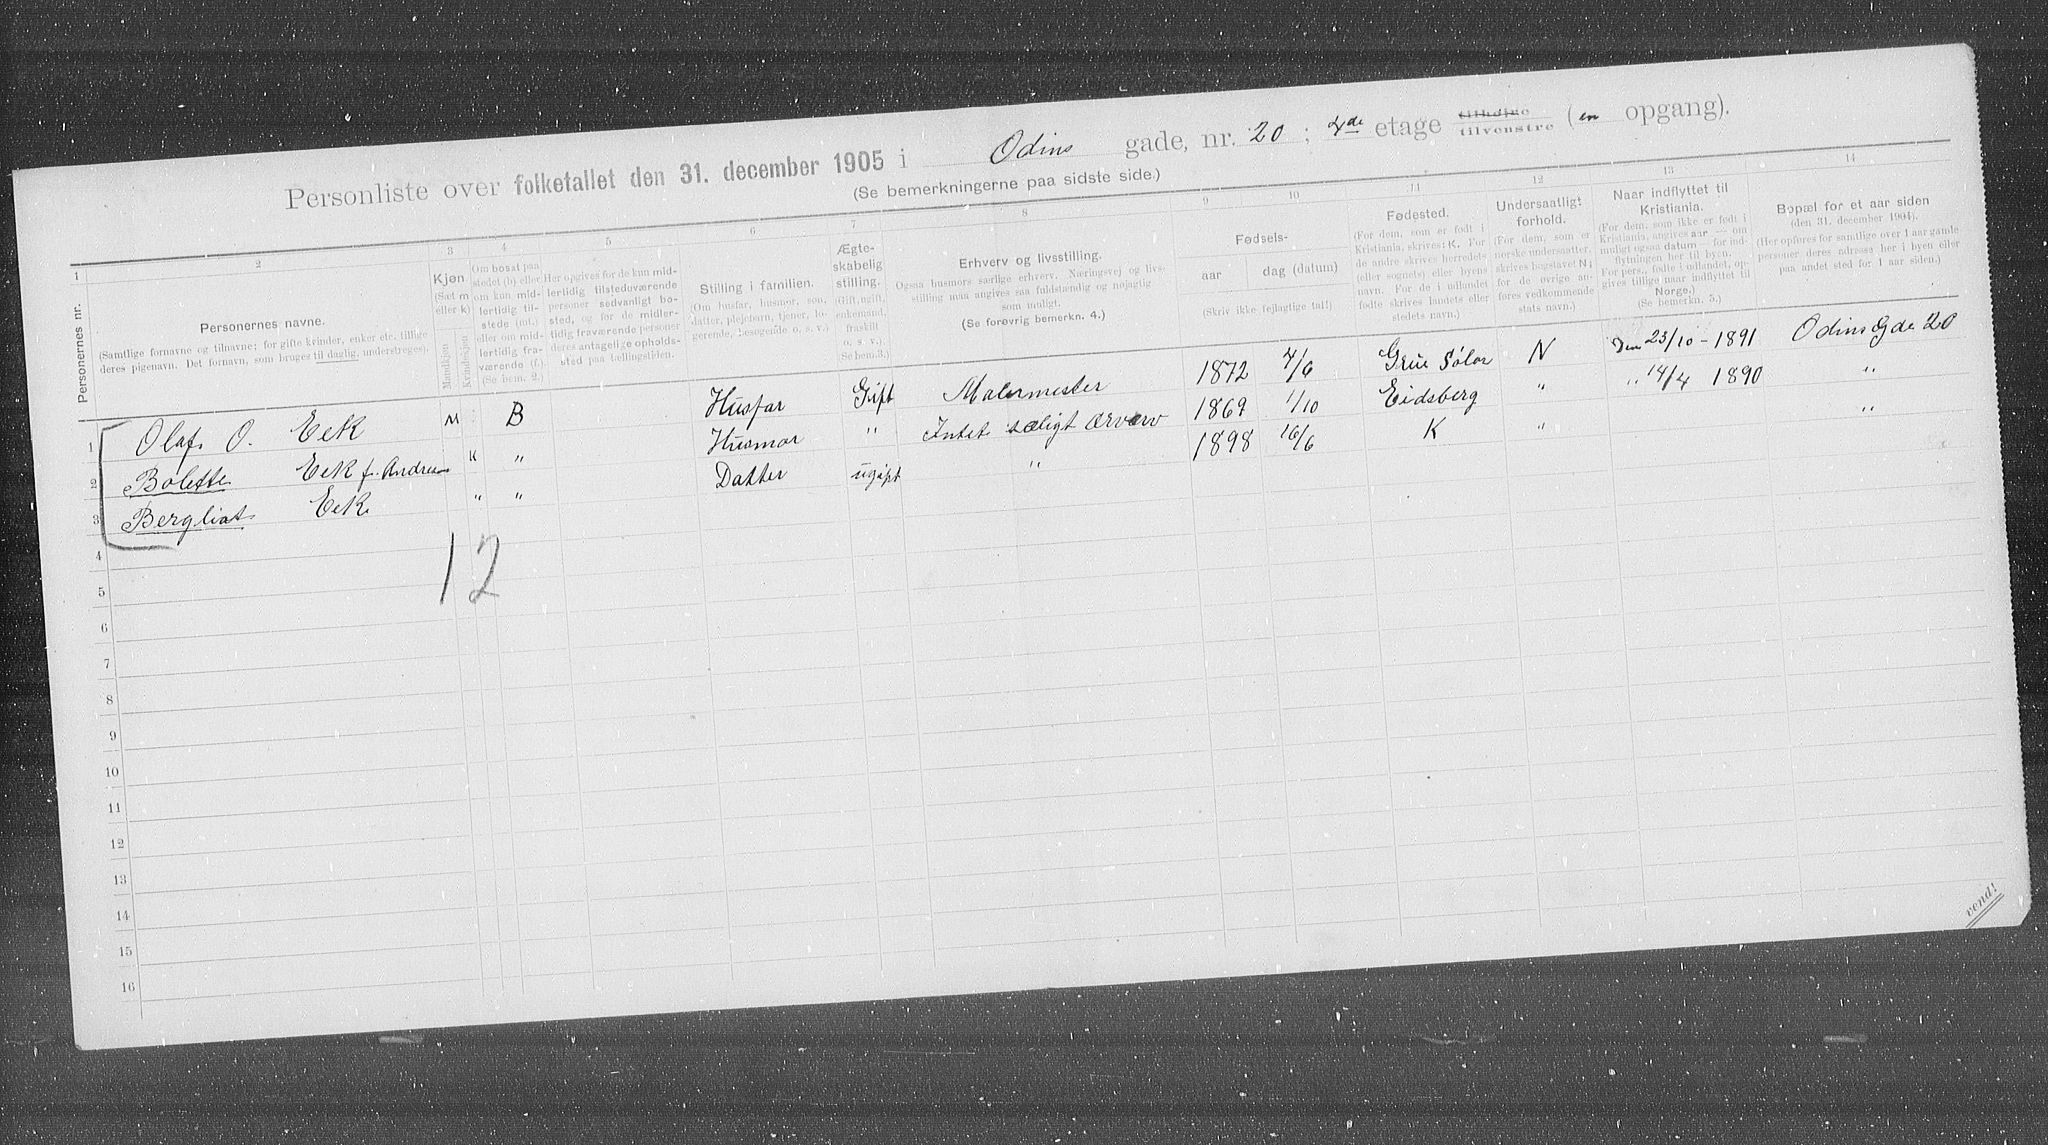 Personliste over folketallet den 31. december 1905 i Odins gade, nr. 20 ; 4de etage tilhøire tilvenstre (en opgang).
(Se bemerkningerne paa sidste side.)
1 2 3 4 5 6 7 8 9 10 11 12 13 14
Personernes nr.
Personernes navne.
(Samtlige fornavne og tilnavne; for gifte kvinder, enker etc. tillige
deres pigenavn. Det fornavn, som bruges til daglig, understreges).
Kjøn
(Sæt m
eller k)
Mandkjøn
Kvindekjøn
Om bosat paa
stedet (b) eller
om kun mid-
lertidig til-
stede (mt.)
eller om mid-
lertidig fra-
værende (f.).
(Se bem. 2.)
Her opgives for de kun mid-
lertidig tilstedeværende
personer sedvanligt bo-
sted, og for de midler-
tidig fraværende personer
deres antagelige opholds-
sted paa tællingstiden.
Stilling i familien.
(Om husfar, husmor, søn,
datter, plejebarn, tjener, lo-
gerende, besøgende o. s. v.)
Ægte-
skabelig
stilling.
(Gift, ugift,
enkemand,
fraskilt
o. s. v.)
(Se bem. 3.)
Erhverv og livsstilling.
Ogsaa husmors særlige erhverv. Næringsvej og livs-
stilling maa angives saa fuldstændig og nøjagtig
som muligt.
(Se forøvrig bemerkn. 4.)
Fødsels-
aar dag (datum)
(Skriv ikke fejlagtige tal!)
Fødested.
(For dem, som er født i
Kristiania, skrives: K. For
de andre skrives herredets
(eller sognets) eller byens
navn. For de i udlandet
fødte skrives landets eller
stedets navn.)
Undersaatligt
forhold.
(For dem, som er
norske undersaatter,
skrives bogstavet N;
for de øvrige an-
føres vedkommende
stats navn.)
Naar indflyttet til
Kristiania.
(For dem, som ikke er født i
Kristiania, angives aar — om
muligt ogsaa datum — for ind-
flytningen her til byen.
For pers., fødte i udlandet, op-
gives tillige naar indflyttet til
Norge.)
(Se bemerkn. 5.)
Bopæl for et aar siden
(den 31. december 1904).
(Her opføres for samtlige over 1 aar gamle
personer deres adresse her i byen eller
paa andet sted for 1 aar siden.)
1 Olaf O. Eek M B Husfar Gift Malermester 1872 4/6 Grue Solør N Den 23/10 - 1891 Odins Gde 20
2 Bolette Eek f. Andresen K " Husmor " Intet særligt ærverv 1869 1/10 Eidsberg " " 14/4 1890 "
3 Bergliot Eek " " Datter ugift " 1898 16/6 K " "
12
4
5
6
7
8
9
10
11
12
13
14
15
16
vend!